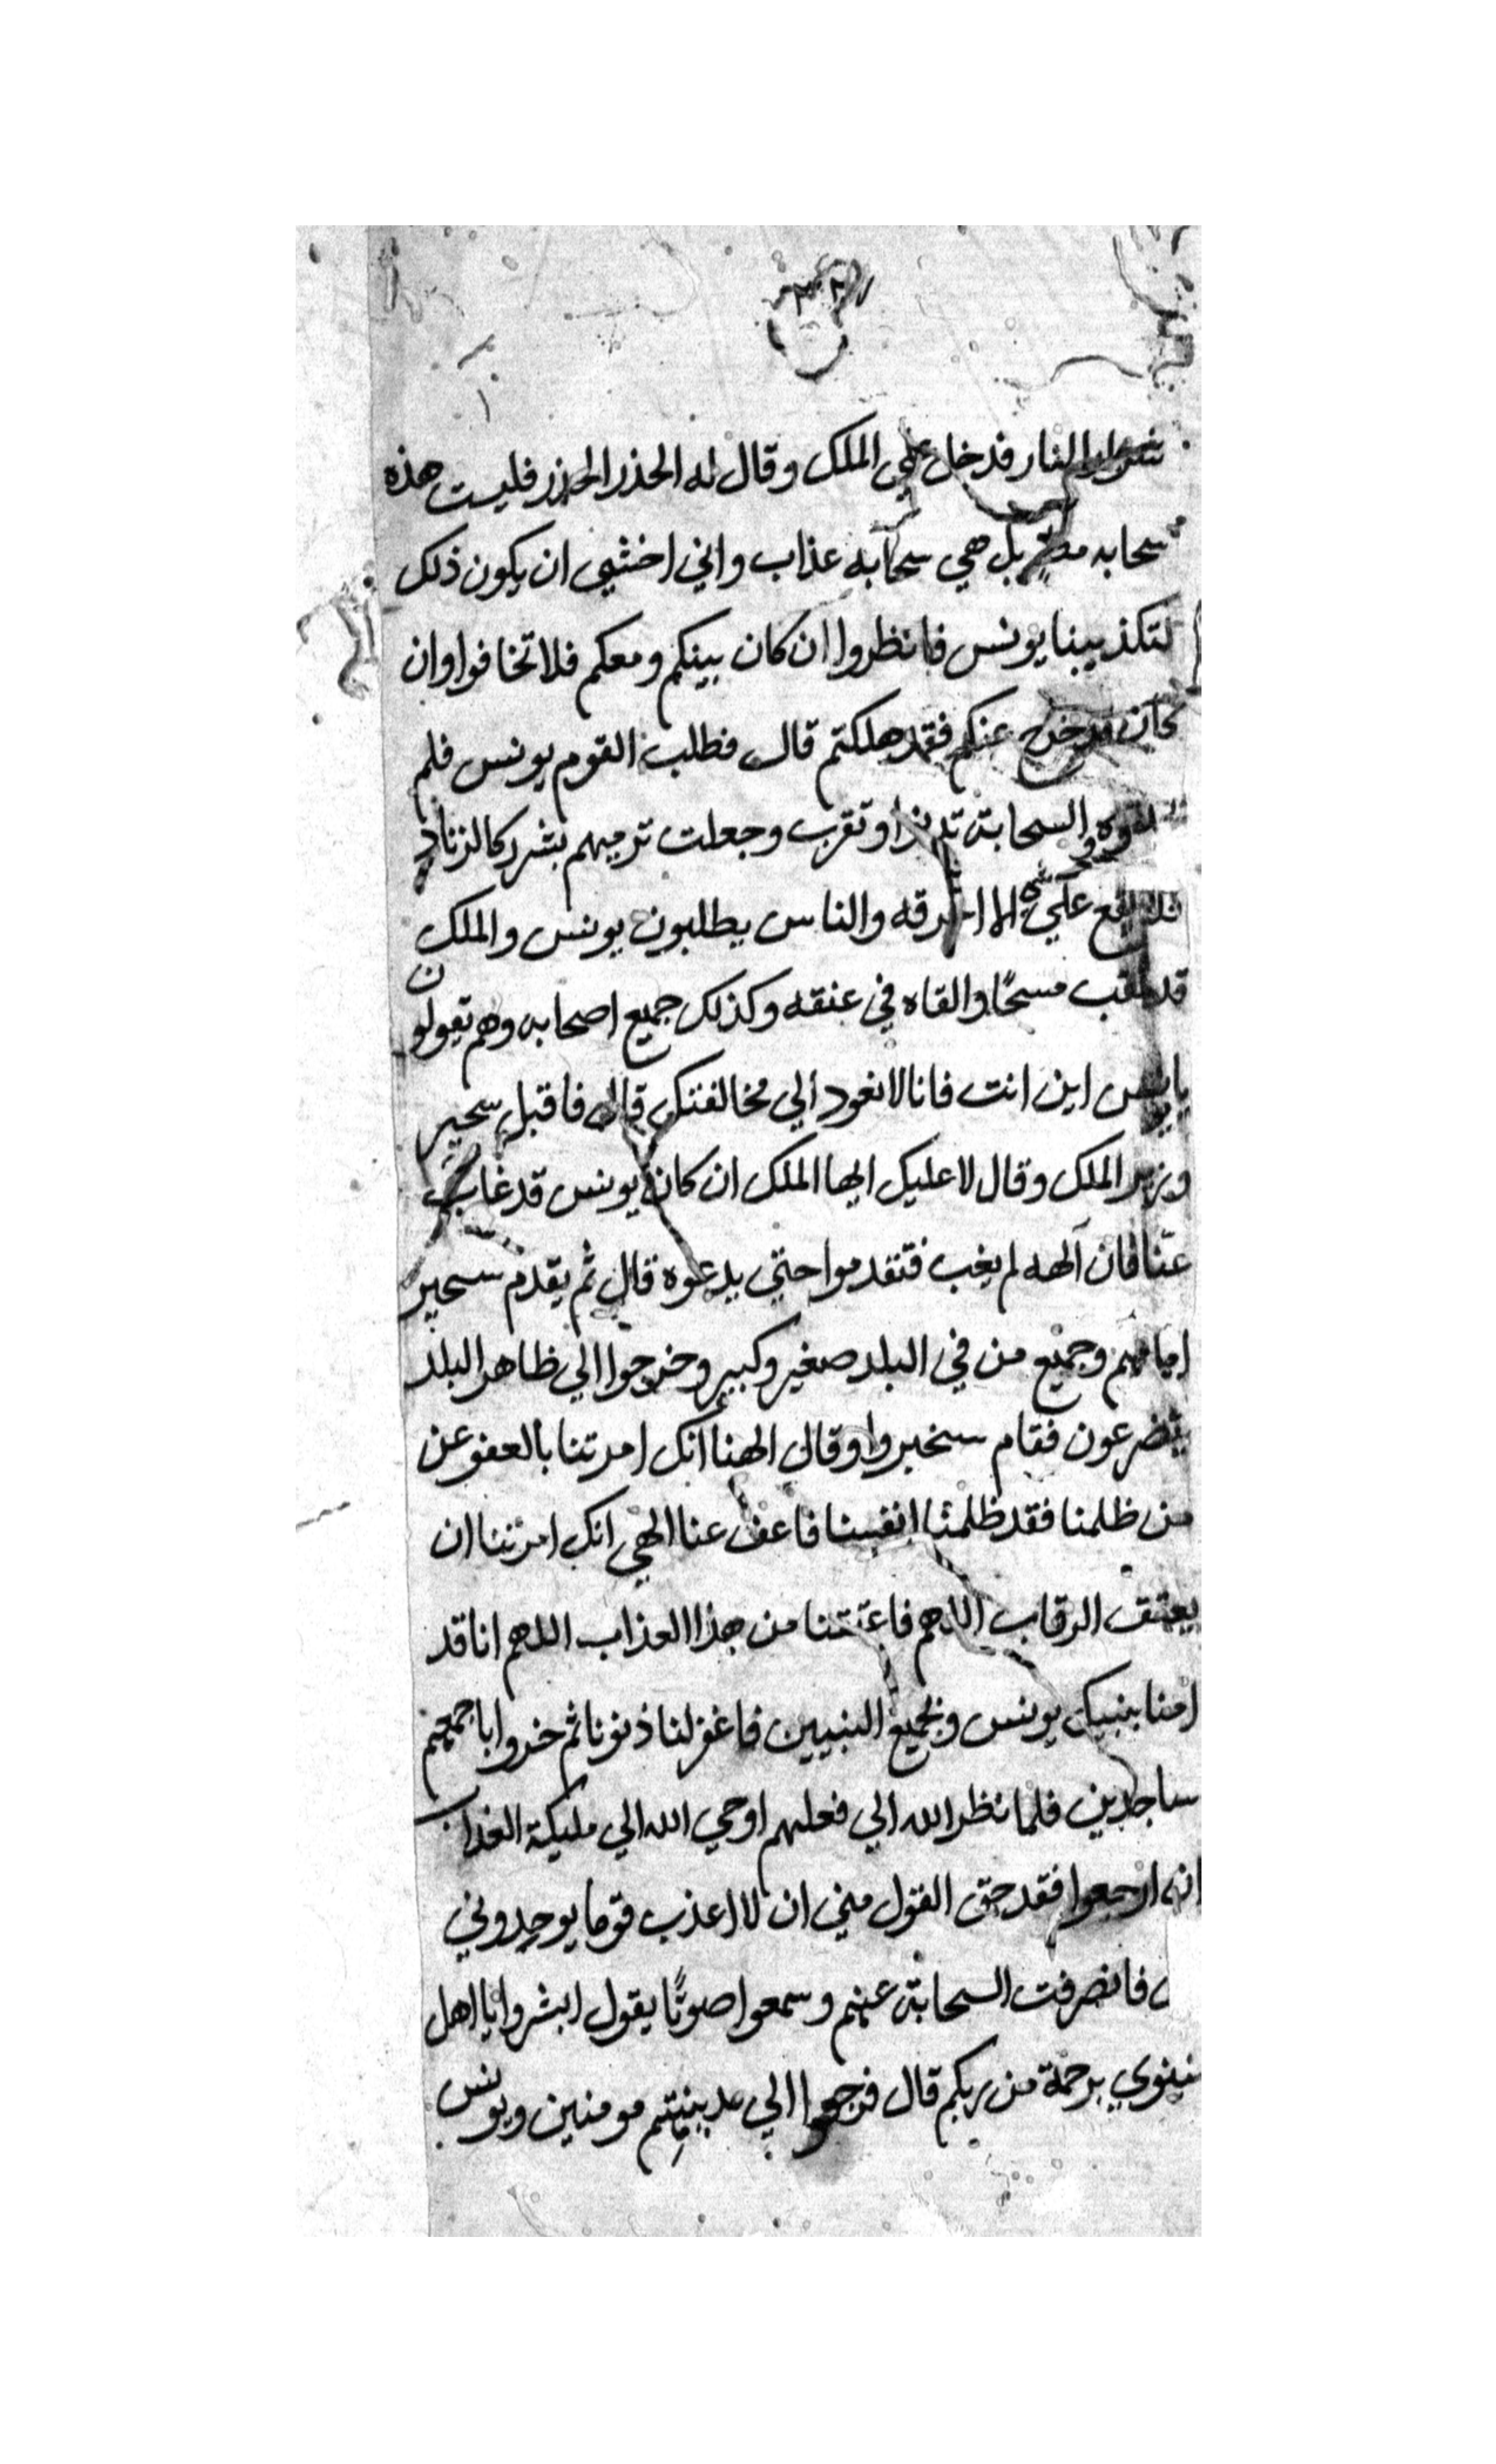 النار فدخل علي الملك وقال له الحذر الحذر فليست هذه
سحابه مطر بل هي سحابه عذاب واني اخشي ان يكون ذلك
لتكذيبنا يونس فانظروا ان كان بينكم ومعكم فلا تخافوا وان
كان قد خرج عنكم فقد هلكتم قال فطلب القوم يونس فلم
والسحابة تدنوا وتقرب وجعلت ترميهم بشرر كالزناد
علي شي الا احرقه والناس يطلبون يونس والملك
قد مسحًا والقاه في عنقه وكذلك جميع اصحابه وهم تقولون
يا يونس اين انت فانا لا نعود الي مخالفتك قال فاقبل سحير
وزير الملك وقال لا عليك ايها الملك ان كان يونس قد غاب
عنا فان آلهه لم يغب فتقدموا حتي يدعوه قال ثم يقدم سحير
امامهم وجميع من في البلد صغير وكبير وخرجوا الي ظاهر البلد
يتضرعون فقام سنحير وا وقال الهنا انك امرتنا بالعفو عن
من ظلمنا فقد ظلمنا انفسنا فاعف عنا الهي انك امرتنا ان
يعتق الرقاب اللاهم فاعتقنا من هذا العذاب اللهم انا قد
امنا بنبيك يونس وبجميع النبيين فاغفر لنا ذنوبنا ثم خروا باجمعهم
ساجدين فلما نظر الله الي فعلهم اوحي الله الي مليكة العذاب
انه ارجعوا فقد حق القول مني ان لا اعذب قوما يوحدوني
فانصرفت السحابة عنهم وسمعوا صوتًا يقول ابشروا يا اهل
نينوي برحمة من ربكم قال فرجعوا الي مدينتهم مومنين ويونس